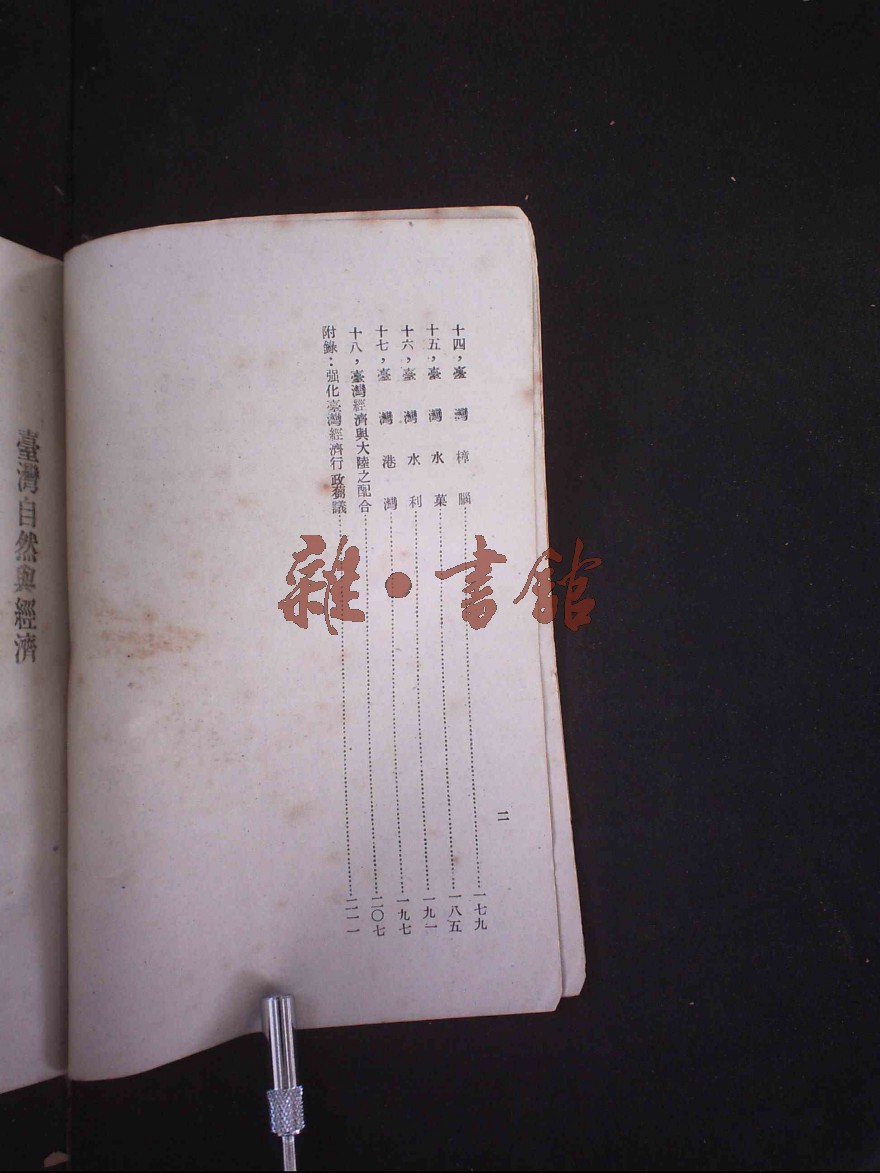 二
十四，臺灣樟腦……一七九
十五，臺灣水菓……一八五
十六，臺灣水利……一九一
十七，臺灣港灣……一九七
十八，臺灣經濟與大陸之配合……二〇七
附錄：强化臺灣經濟行政芻議……二一一
臺灣自然與經濟
雜·書館